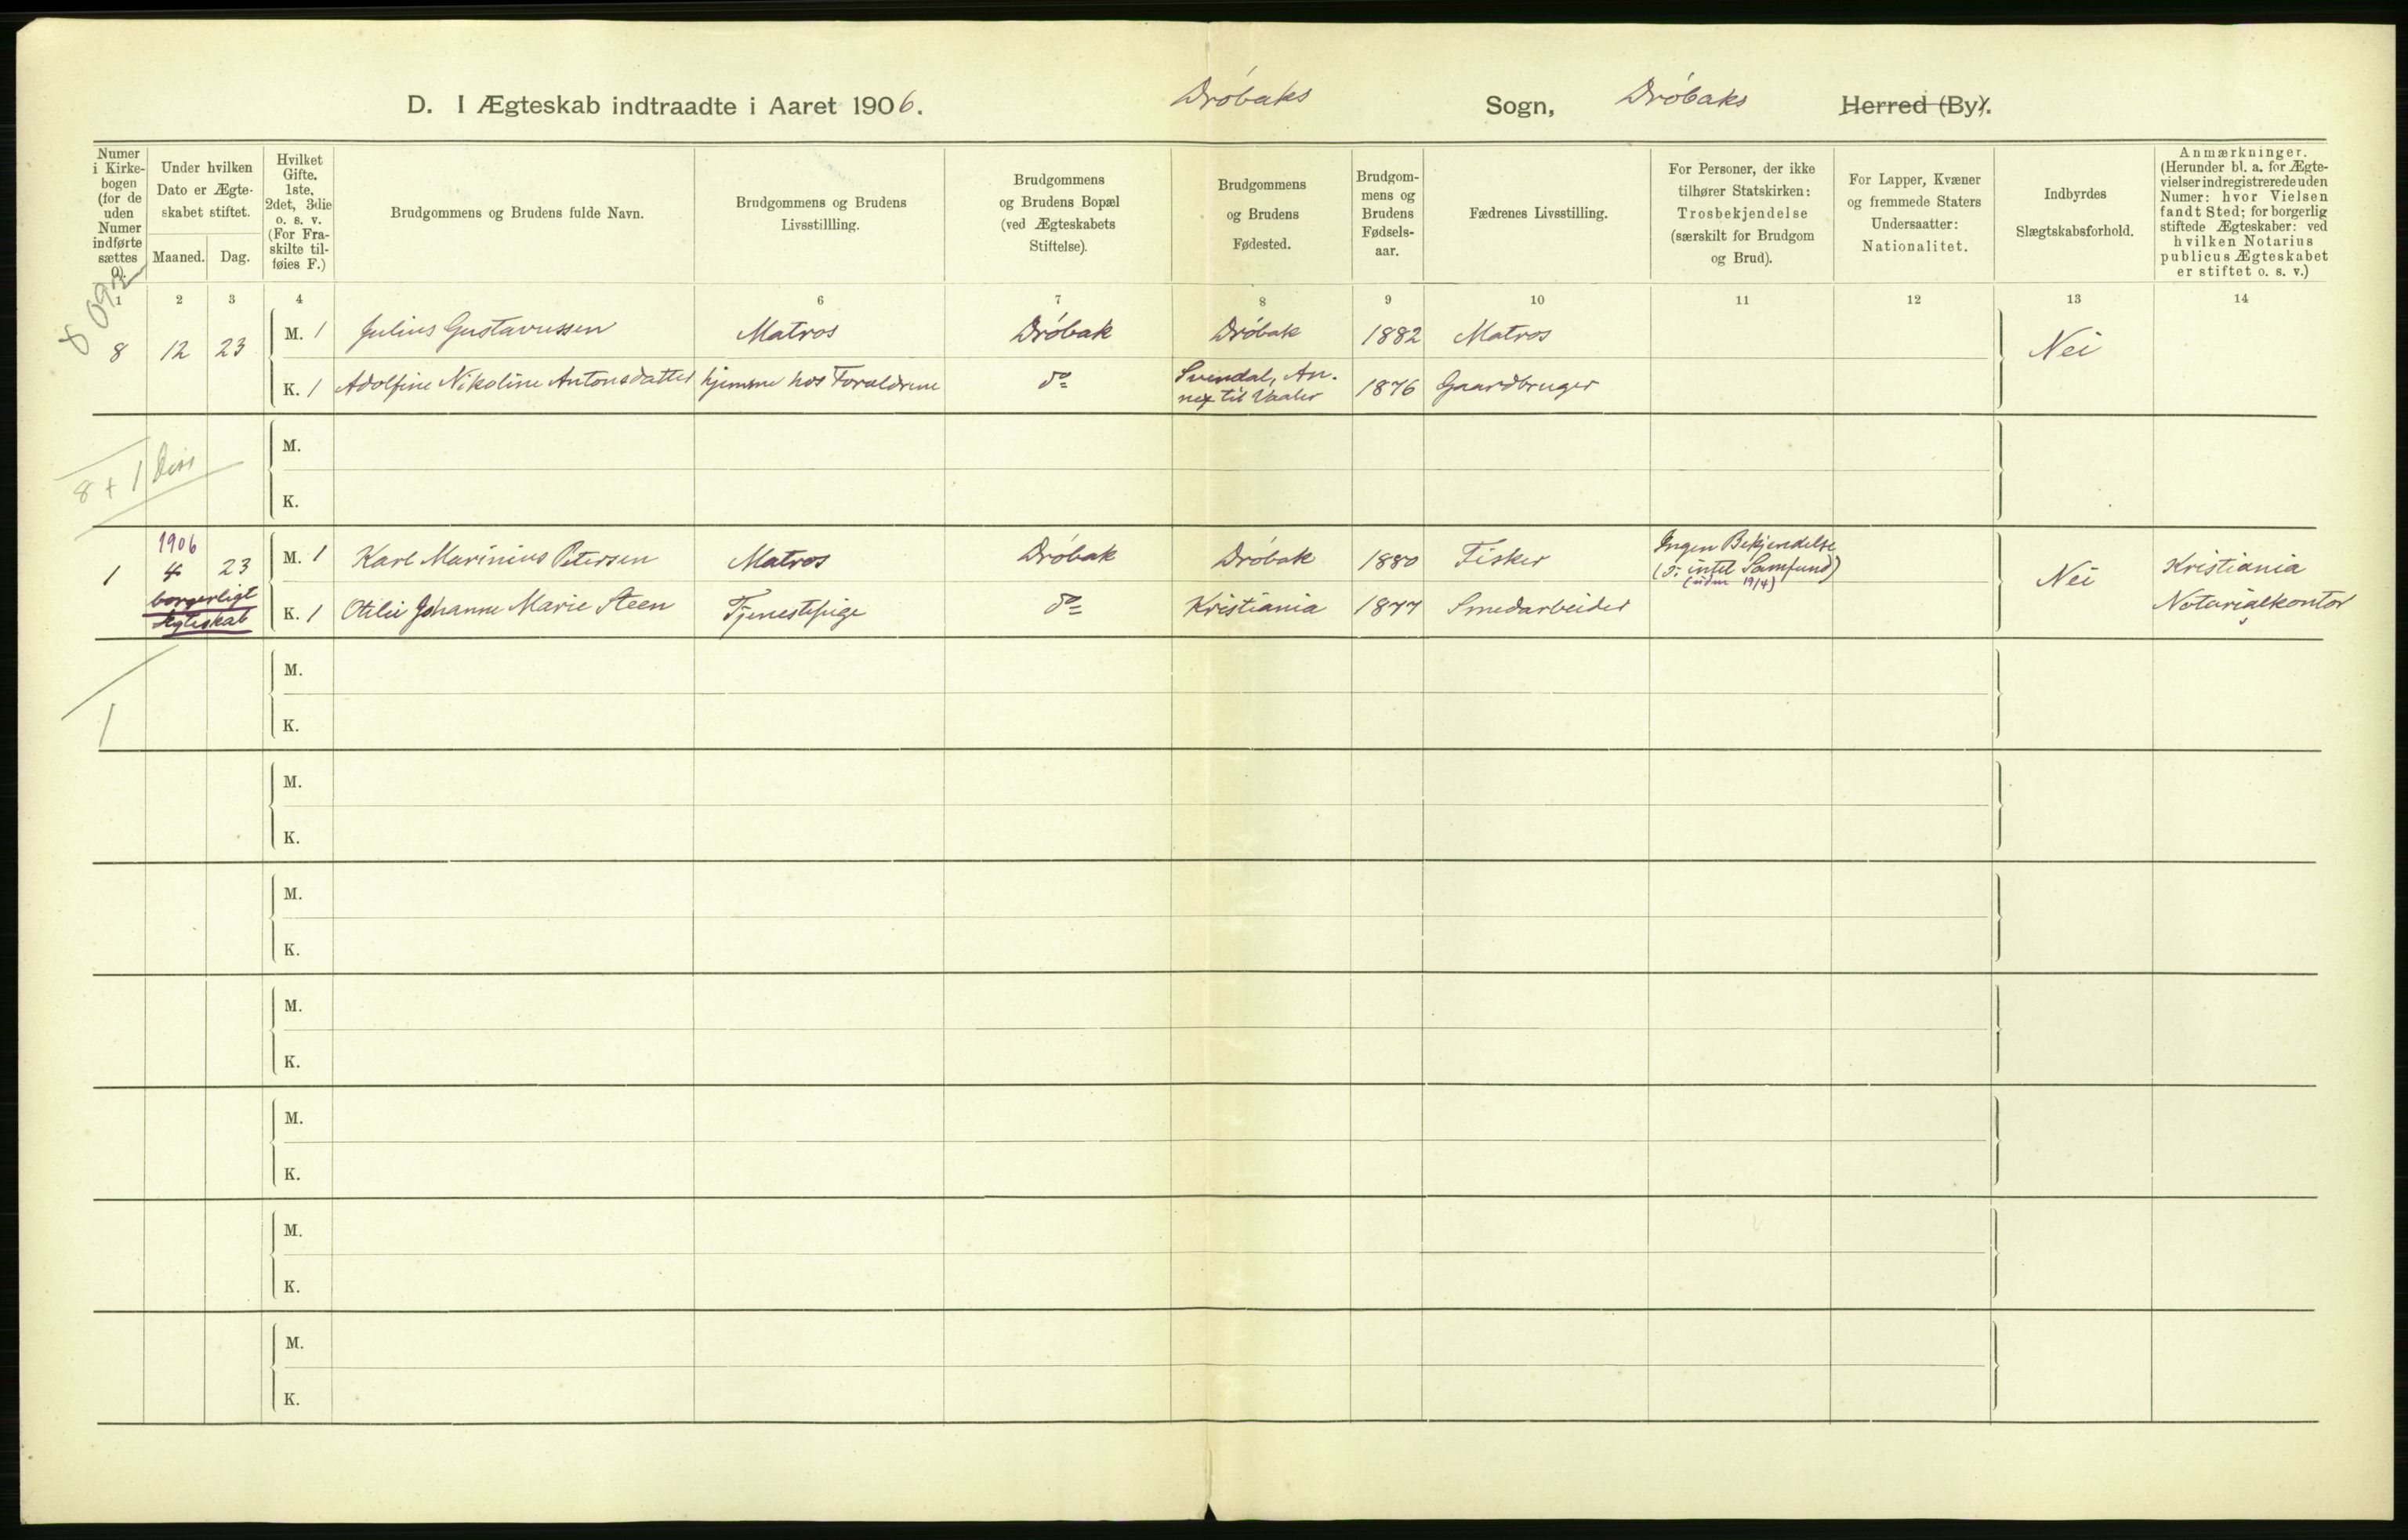 D. I Ægteskab indtraadte i Aaret 1906. Drøbaks Sogn, Drøbaks Herred (By).
Numer
i Kirke-
bogen
(for de
uden
Numer
indførte
sættes
0).
Under hvilken
Dato er Ægte-
skabet stiftet.
Maaned. Dag.
Hvilket
Gifte.
1ste,
2det, 3die
o. s. v.
(For Fra-
skilte til-
føies F.)
Brudgommens og Brudens fulde Navn.
Brudgommens og Brudens
Livsstillling.
Brudgommens
og Brudens Bopæl
(ved Ægteskabets
Stiftelse).
Brudgommens
og Brudens
Fødested.
Brudgom-
mens og
Brudens
Fødsels-
aar.
Fædrenes Livsstilling.
For Personer, der ikke
tilhører Statskirken:
Trosbekjendelse
(særskilt for Brudgom
og Brud).
For Lapper, Kvæner
og fremmede Staters
Undersaatter:
Nationalitet.
Indbyrdes
Slægtskabsforhold.
Anmærkninger.
(Herunder bl. a. for Ægte-
vielser indregistrerede uden
Numer: hvor Vielsen
fandt Sted; for borgerlig
stiftede Ægteskaber: ved
hvilken Notarius
publicus Ægteskabet
er stiftet o. s. v.)
1 2 3 4 6 7 8 9 10 11 12 13 14
8 12 23
M. 1 Julius Gustavussen Matros Drøbak Drøbak 1882 Matros Nei
K. 1 Adolfine Nikoline Antonsdatter hjemme hos Forældrene do Svindal, An-
nex til Vaaler 1876 Gaardbruger
8 + 1 Diss
M.
K.
1906
1 4 23
borgerligt
Ægteskab
M. 1 Karl Marinius Petersen Matros Drøbak Drøbak 1880 Fisker
Ingen Bekjendelse
(ɔ: intet Samfund)
(uden 19/4)
Nei
Kristiania
Notarialkontor
K. 1 Otilie Johanne Marie Steen Tjenestepige do Kristiania 1877 Smedarbeider
1
M.
K.
M.
K.
M.
K.
M.
K.
M.
K.
M.
K.
M.
K.